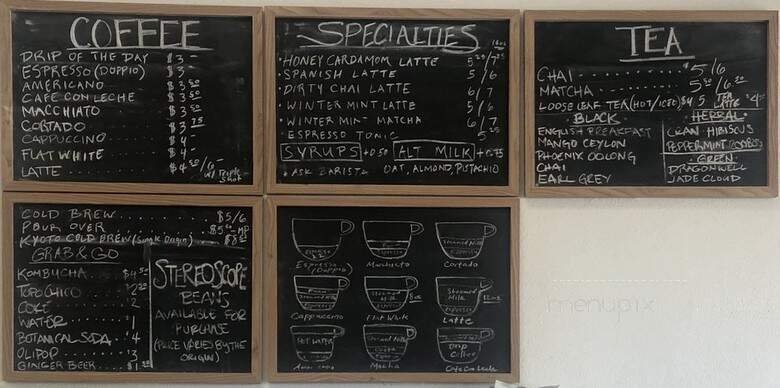 COFFEE
DRIP OF THE DAY $3
ESPRESSO (DOPPIO) $3
AMERICANO $3 50
CAFE CON LECHE $3 50
MACCHIATO $3 50
CORTADO $3 75
CAPPUCCINO $4
FLAT WHITE $4
LATTE $4 50/6 w/ Triple Shot
SPECIALTIES
16oz
HONEY CARDAMOM LATTE
SPANISH LATTE 5/6
DIRTY CHAI LATTE 6/7
WINTER MINT LATTE 5/6
WINTER MINT MATCHA 6/7
ESPRESSO TONIC 5
SYRUPS +0.50 ALT MILK +0.75
ASK BARISTA OAT, ALMOND, PISTACHIO
TEA
CHAI $5/6
MATCHA
LOOSE LEAF TEA (HOT/ICED) $4 5 TEA LATTE
BLACK
ENGLISH BREAKFAST
MANGO CEYLON
PHOENIX OOLONG
CHAI
EARL GREY
HERBAL
CRAN HIBISCUS
PEPPERMINT
GREEN
DRAGONWELL
JADE CLOUD
COLD BREW $5/6
POUR OVER
KYOTO COLD BREW (Single Origin)
GRAB & GO
KOMBUCHA $4
TOPO CHICO $2
COKE $2
WATER $1
BOTANICAL SODA 4
OLIPOP 3
GINGER BEER
STEREOSCOPE
BEANS
AVAILABLE FOR
PURCHASE
(PRICE VARIES BY THE
ORIGIN)
Espresso (Doppio)
Macchiato
Steamed Milk
Espresso
Cortado
Foam
Steamed Milk
Espresso
Cappuccino
Steamed Milk 8oz
Espresso
Flat White
Steamed Milk 12oz
Espresso
Latte
HOT WATER
Espresso
Americano
Steamed Milk
Espresso
Mocha
Steamed Milk
Drip Coffee
Cafe Con Leche
menupix